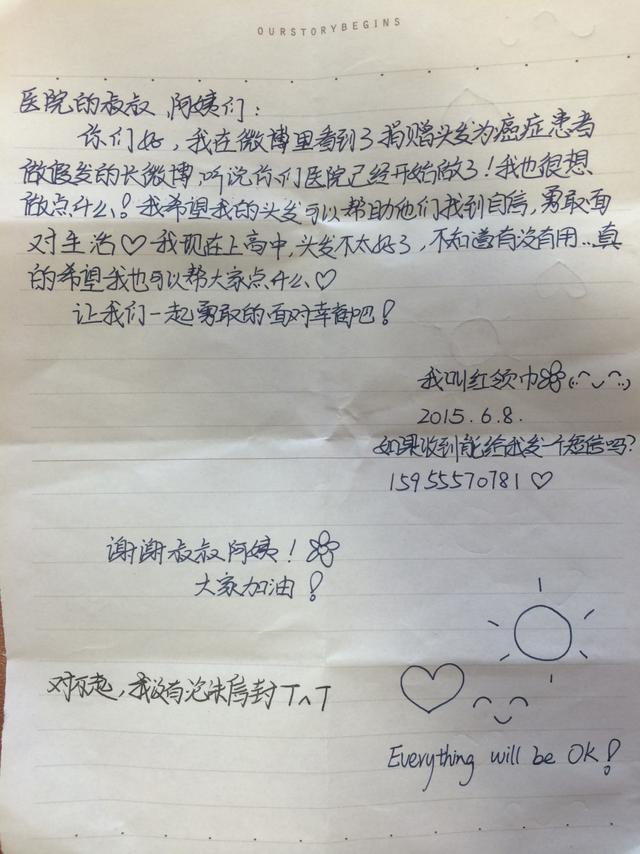 OURSTORYBEGINS
医院的叔叔,阿姨们:
你们好,我在微博里看到了捐赠头发为癌症患者
做假发的长微博,听说你们医院已经开始做了!我也很想
做点什么!我希望我的头发可以帮助他们找到自信,勇敢面
对生活♡我现在上高中,头发不太好了,不知道有没有用...真
的希望我也可以帮大家点什么♡
让我们一起勇敢的面对幸福吧!
我叫红领巾
2015.6.8.
如果收到能给我发一个短信吗?
15955570781♡
谢谢叔叔阿姨!
大家加油!
对不起,我没有泡沫信封T^T
Everything will be OK!